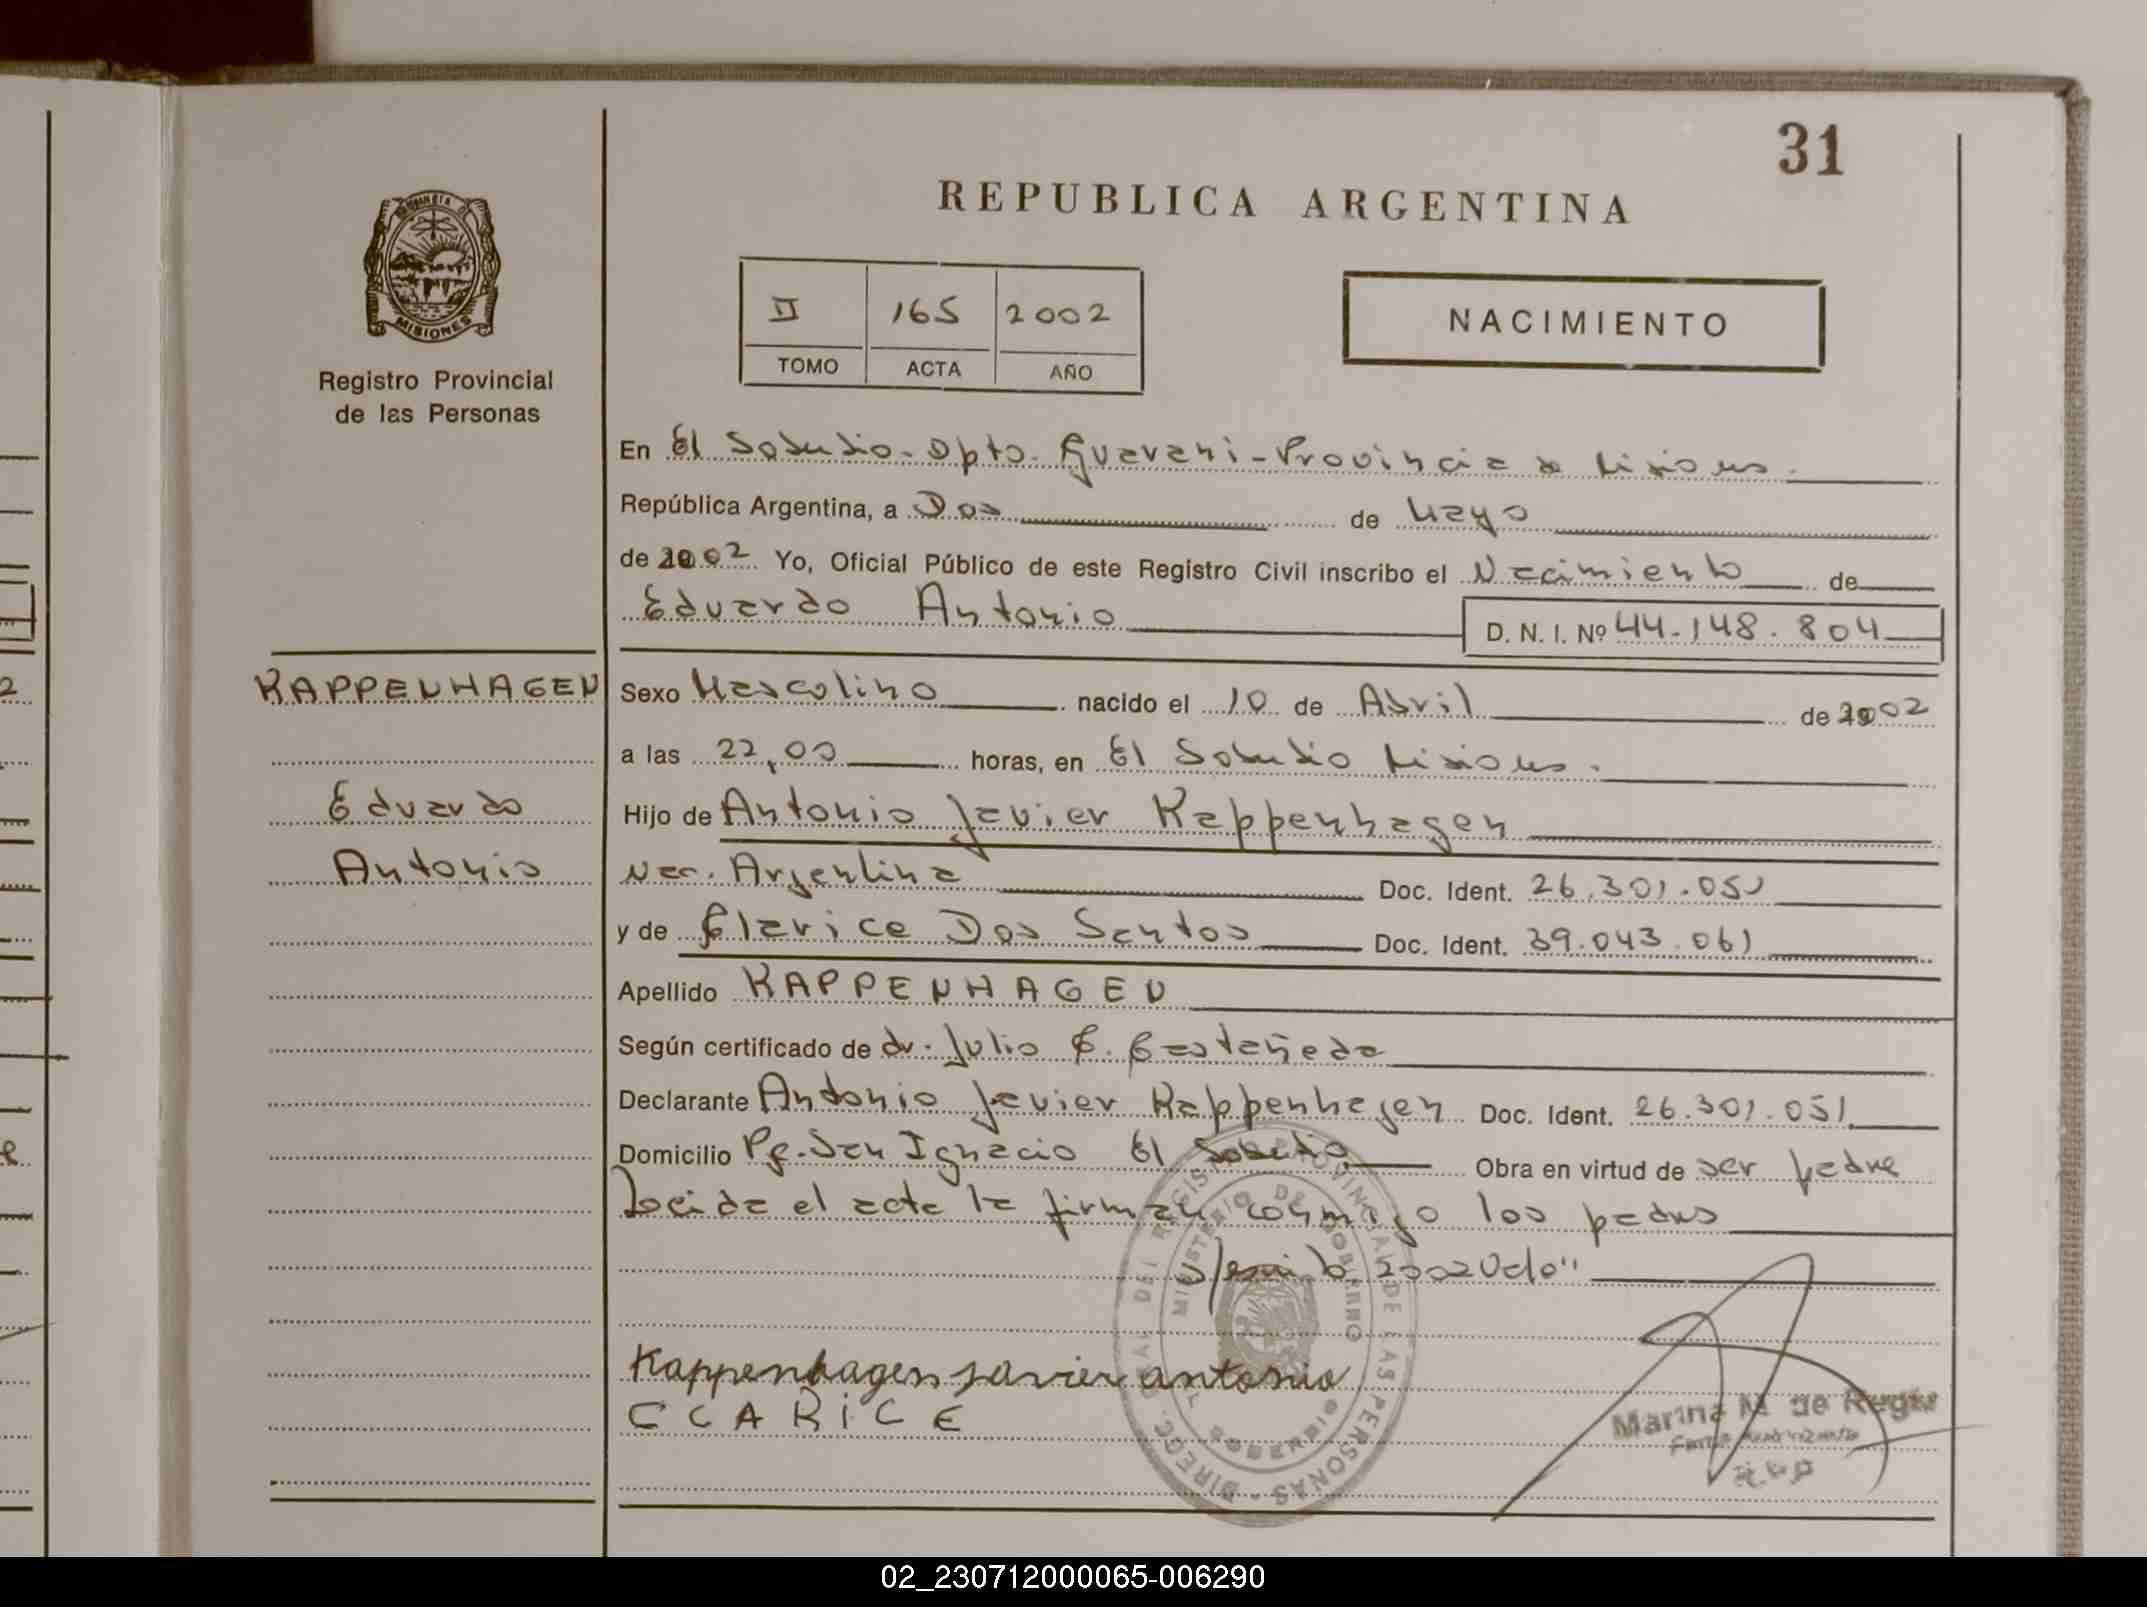 31
REPUBLICA ARGENTINA
MISIONES
Registro Provincial
de las Personas
II 165 2002
TOMO ACTA AÑO
NACIMIENTO
En El Soberbio - Dpto. Guarani - Provincia de Misiones.
República Argentina, a Dos de Mayo
de 2002 Yo, Oficial Público de este Registro Civil inscribo el Nacimiento de
Eduardo Antonio D. N. I. Nº 44.148.804
KAPPENHAGEN
Eduardo
Antonio
Sexo Masculino nacido el 10 de Abril de 2002
a las 22,00 horas, en El Soberbio Misiones.
Hijo de Antonio Javier Kappenhagen
Nac. Argentina Doc. Ident. 26.301.051
y de Clarice Dos Santos Doc. Ident. 39.043.061
Apellido KAPPENHAGEN
Según certificado de dr. Julio C. Castañeda
Declarante Antonio Javier Kappenhagen Doc. Ident. 26.301.051
Domicilio Pje. San Ignacio El Soberbio Obra en virtud de ser padre
Leida el acta la firman conmigo los padres
2002 Vale"
Kappenhagen Javier antonio
CLARICE
DIRECC. GRAL. DEL REGISTRO PROVINCIAL DE LAS PERSONAS
MINISTERIO DE GOBIERNO
Marina M. de
02_230712000065-006290